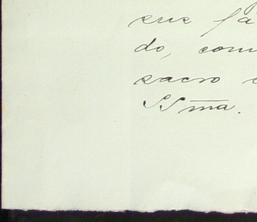 sus fa
do, com
sacro c
SSma.